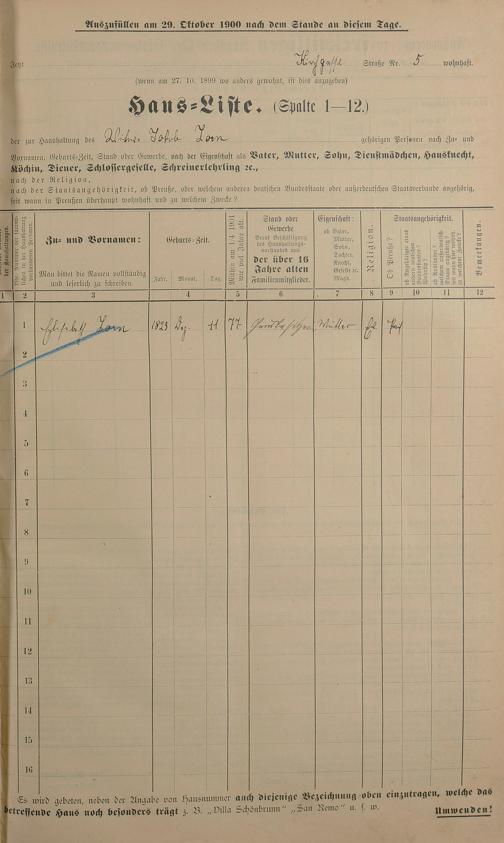 Auszufüllen am 29. Oktober 1900 nach dem Stande an diesem Tage.
Jetzt Kirchgasse Straße Nr. 5 wohnhaft.
(wenn am 27. 10. 1899 wo anders gewohnt, ist dies anzugeben)
Haus-Liste. (Spalte 1—12.)
der zur Haushaltung des Wtw. Jakob Zorn gehörigen Personen nach Zu- und
Vornamen, Geburts-Zeit, Stand oder Gewerbe, nach der Eigenschaft als Vater, Mutter, Sohn, Dienstmädchen, Hausknecht,
Köchin, Diener, Schlossergeselle, Schreinerlehrling ꝛc.,
nach der Religion,
nach der Staatsangehörigkeit, ob Preuße, oder welchem anderen deutschen Bundesstaate oder außerdeutschen Staatsverbande angehörig,
seit wann in Preußen überhaupt wohnhaft und zu welchem Zwecke?
Zu- und Vornamen:
Man bittet die Namen vollständig
und leserlich zu schreiben
Geburts-Zeit.
Jahr. Monat. Tag.
Würden am 1.4.1901
wie viel Jahre alt.
Stand oder
Gewerbe
der über 16
Jahre alten
Familienmitglieder.
Eigenschaft:
ob Vater,
Mutter,
Sohn,
Tochter,
Knecht,
Geselle ꝛc.
Magd.
Religion.
Staatsangehörigkeit.
Ob Preuße?
Bemerkungen.
1 2 3 4 5 6 7 8 9 10 11 12
1 Elisabeth Zorn 1823 Dez. 11 77 Mutter
2
3
4
5
6
7
8
9
10
11
12
13
14
15
16
Es wird gebeten, neben der Angabe von Hausnummer auch diejenige Bezeichnung oben einzutragen, welche das
betreffende Haus noch besonders trägt z. B. „Villa Schönbrunn" „San Remo" u. s. w. Umwenden!